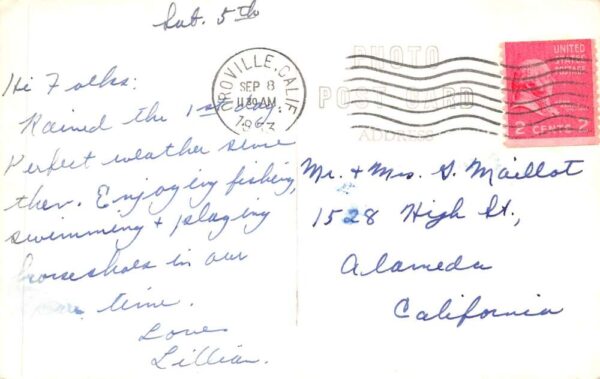 Sat. 5th
Hi Folks:
Rained the 1st day.
Perfect weather since
then. Enjoying fishing,
swimming + playing
horseshoes in our
time.
Love
Lillian.
OROVILLE, CALIF.
SEP 8
11 30 AM
PHOTO
POST CARD
ADDRESS
UNITED
STATES
POSTAGE
2 CENTS 2
Mr. + Mrs. S. Maillot
1528 High St.,
Alameda
California